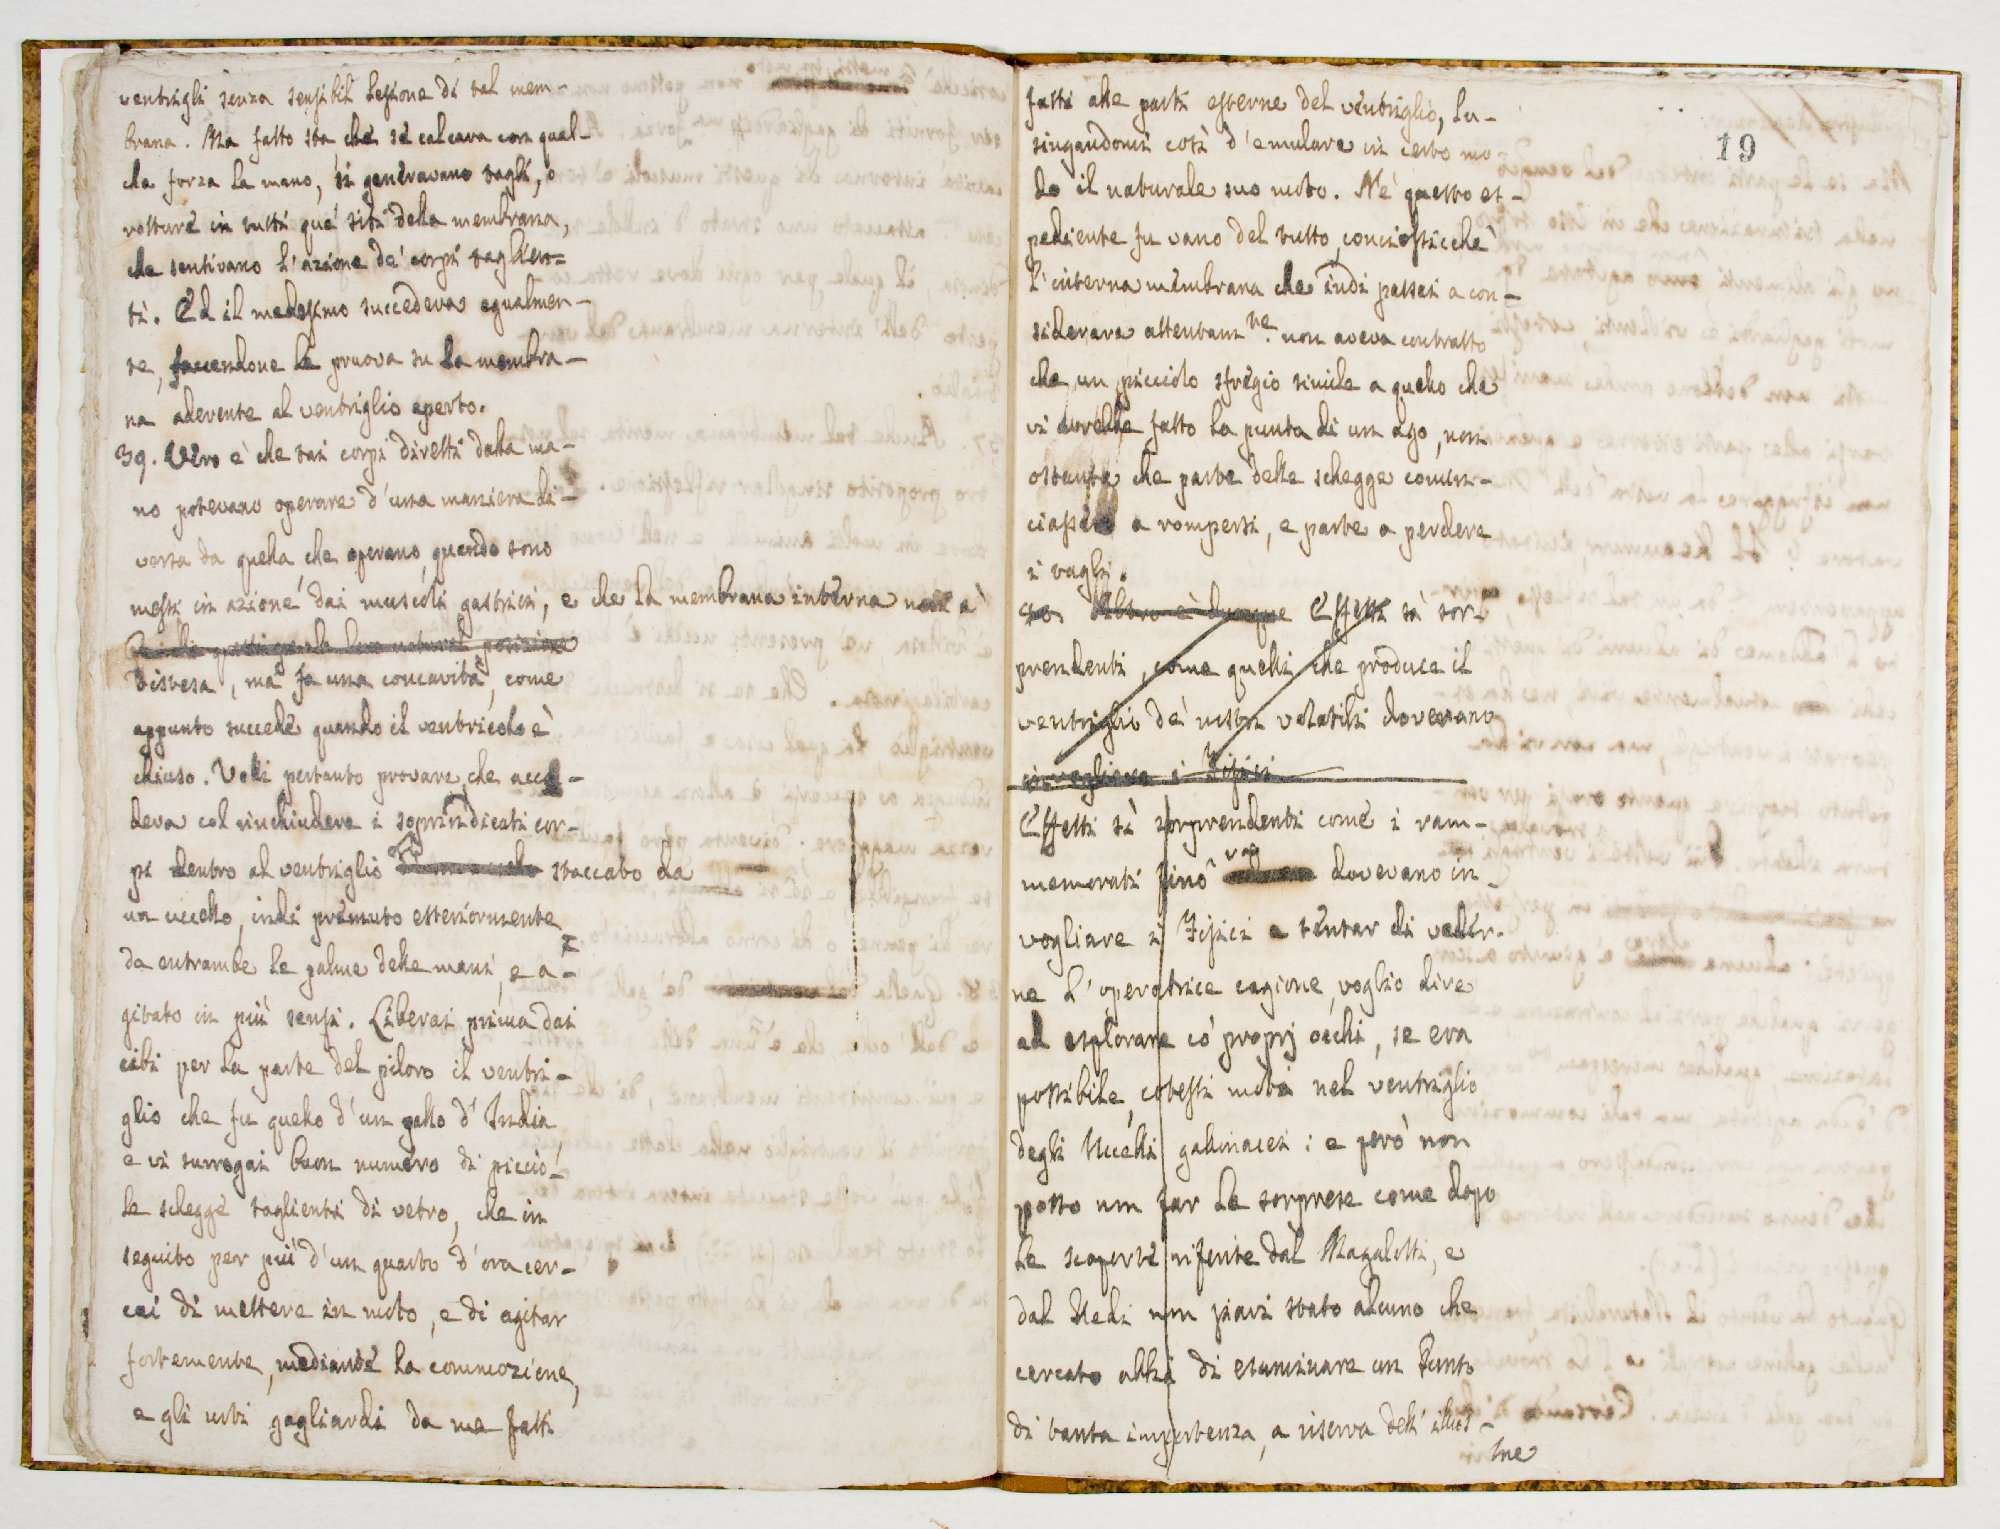 ventrigli senza sensibil lesione di tal mem-
brana. Ma fatto sta che se calcava con qual-
che forza la mano, si generavano tagli, o
rotture in tutti que' siti della membrana,
che sentivano l'azione de' corpi taglien-
ti. Ed il medesimo succedeva egualmen-
te, facendone le pruova su la membra-
na aderente al ventriglio aperto.
39. Vero è che tai corpi diretti dalla ma-
no potevano operare d'una maniera di-
versa da quella che operano, quando sono
messi in azione dai muscoli gastrici, e che la membrana interna non è
distesa, ma fa una concavità, come
appunto succede quando il ventricolo è
chiuso. Volli pertanto provare, che acca-
deva col rinchiudere i soprindicati cor-
pi dentro al ventriglio staccato da
un uccello, indi premuto esteriormente
da entrambe le palme delle mani, e a-
gitato in più sensi. Liberai prima dai
cibi per la parte del piloro il ventri-
glio che fu quello d'un gallo d'India
e vi surrogai buon numero di piccio-
le schegge taglienti di vetro, che in
seguito per più d'un quarto d'ora cer-
cai di mettere in moto, e di agitar
fortemente, mediante la commozione,
e gli urti gagliardi da me fatti
19
fatti alle parti esterne del ventriglio, lu-
singandomi così d'emulare in certo mo-
do il naturale suo moto. Nè questo es-
pediente fu vano del tutto, conciossiacchè
l'interna membrana che indi passai a con-
siderare attentam.te non aveva contratto
che un picciolo sfregio simile a quello che
vi avrebbe fatto la punta di un ago, non
ostante che parte delle schegge comin-
ciassero a rompersi, e parte a perdere
i tagli.
40. Altro è dunque Effetti sì sor-
prendenti, come quelli che produce il
ventriglio de' nostri volatili dovevano
invogliare i Fisici
Effetti sì sorprendenti come i ram-
memorati fino dovevano in-
vogliare i Fisici a tentar di veder-
ne l'operatrice cagione, voglio dire
ad esplorare co' proprj occhi, se era
possibile, cotesti moti nel ventriglio
degli Uccelli gallinacei: e però non
posso non far le sorprese come dopo
le scoperte riferite dal Magalotti, e
dal Redi non siavi stato alcuno che
cercato abbia di esaminare un Punto
di tanta importanza, a riserva dell' illus-
tre